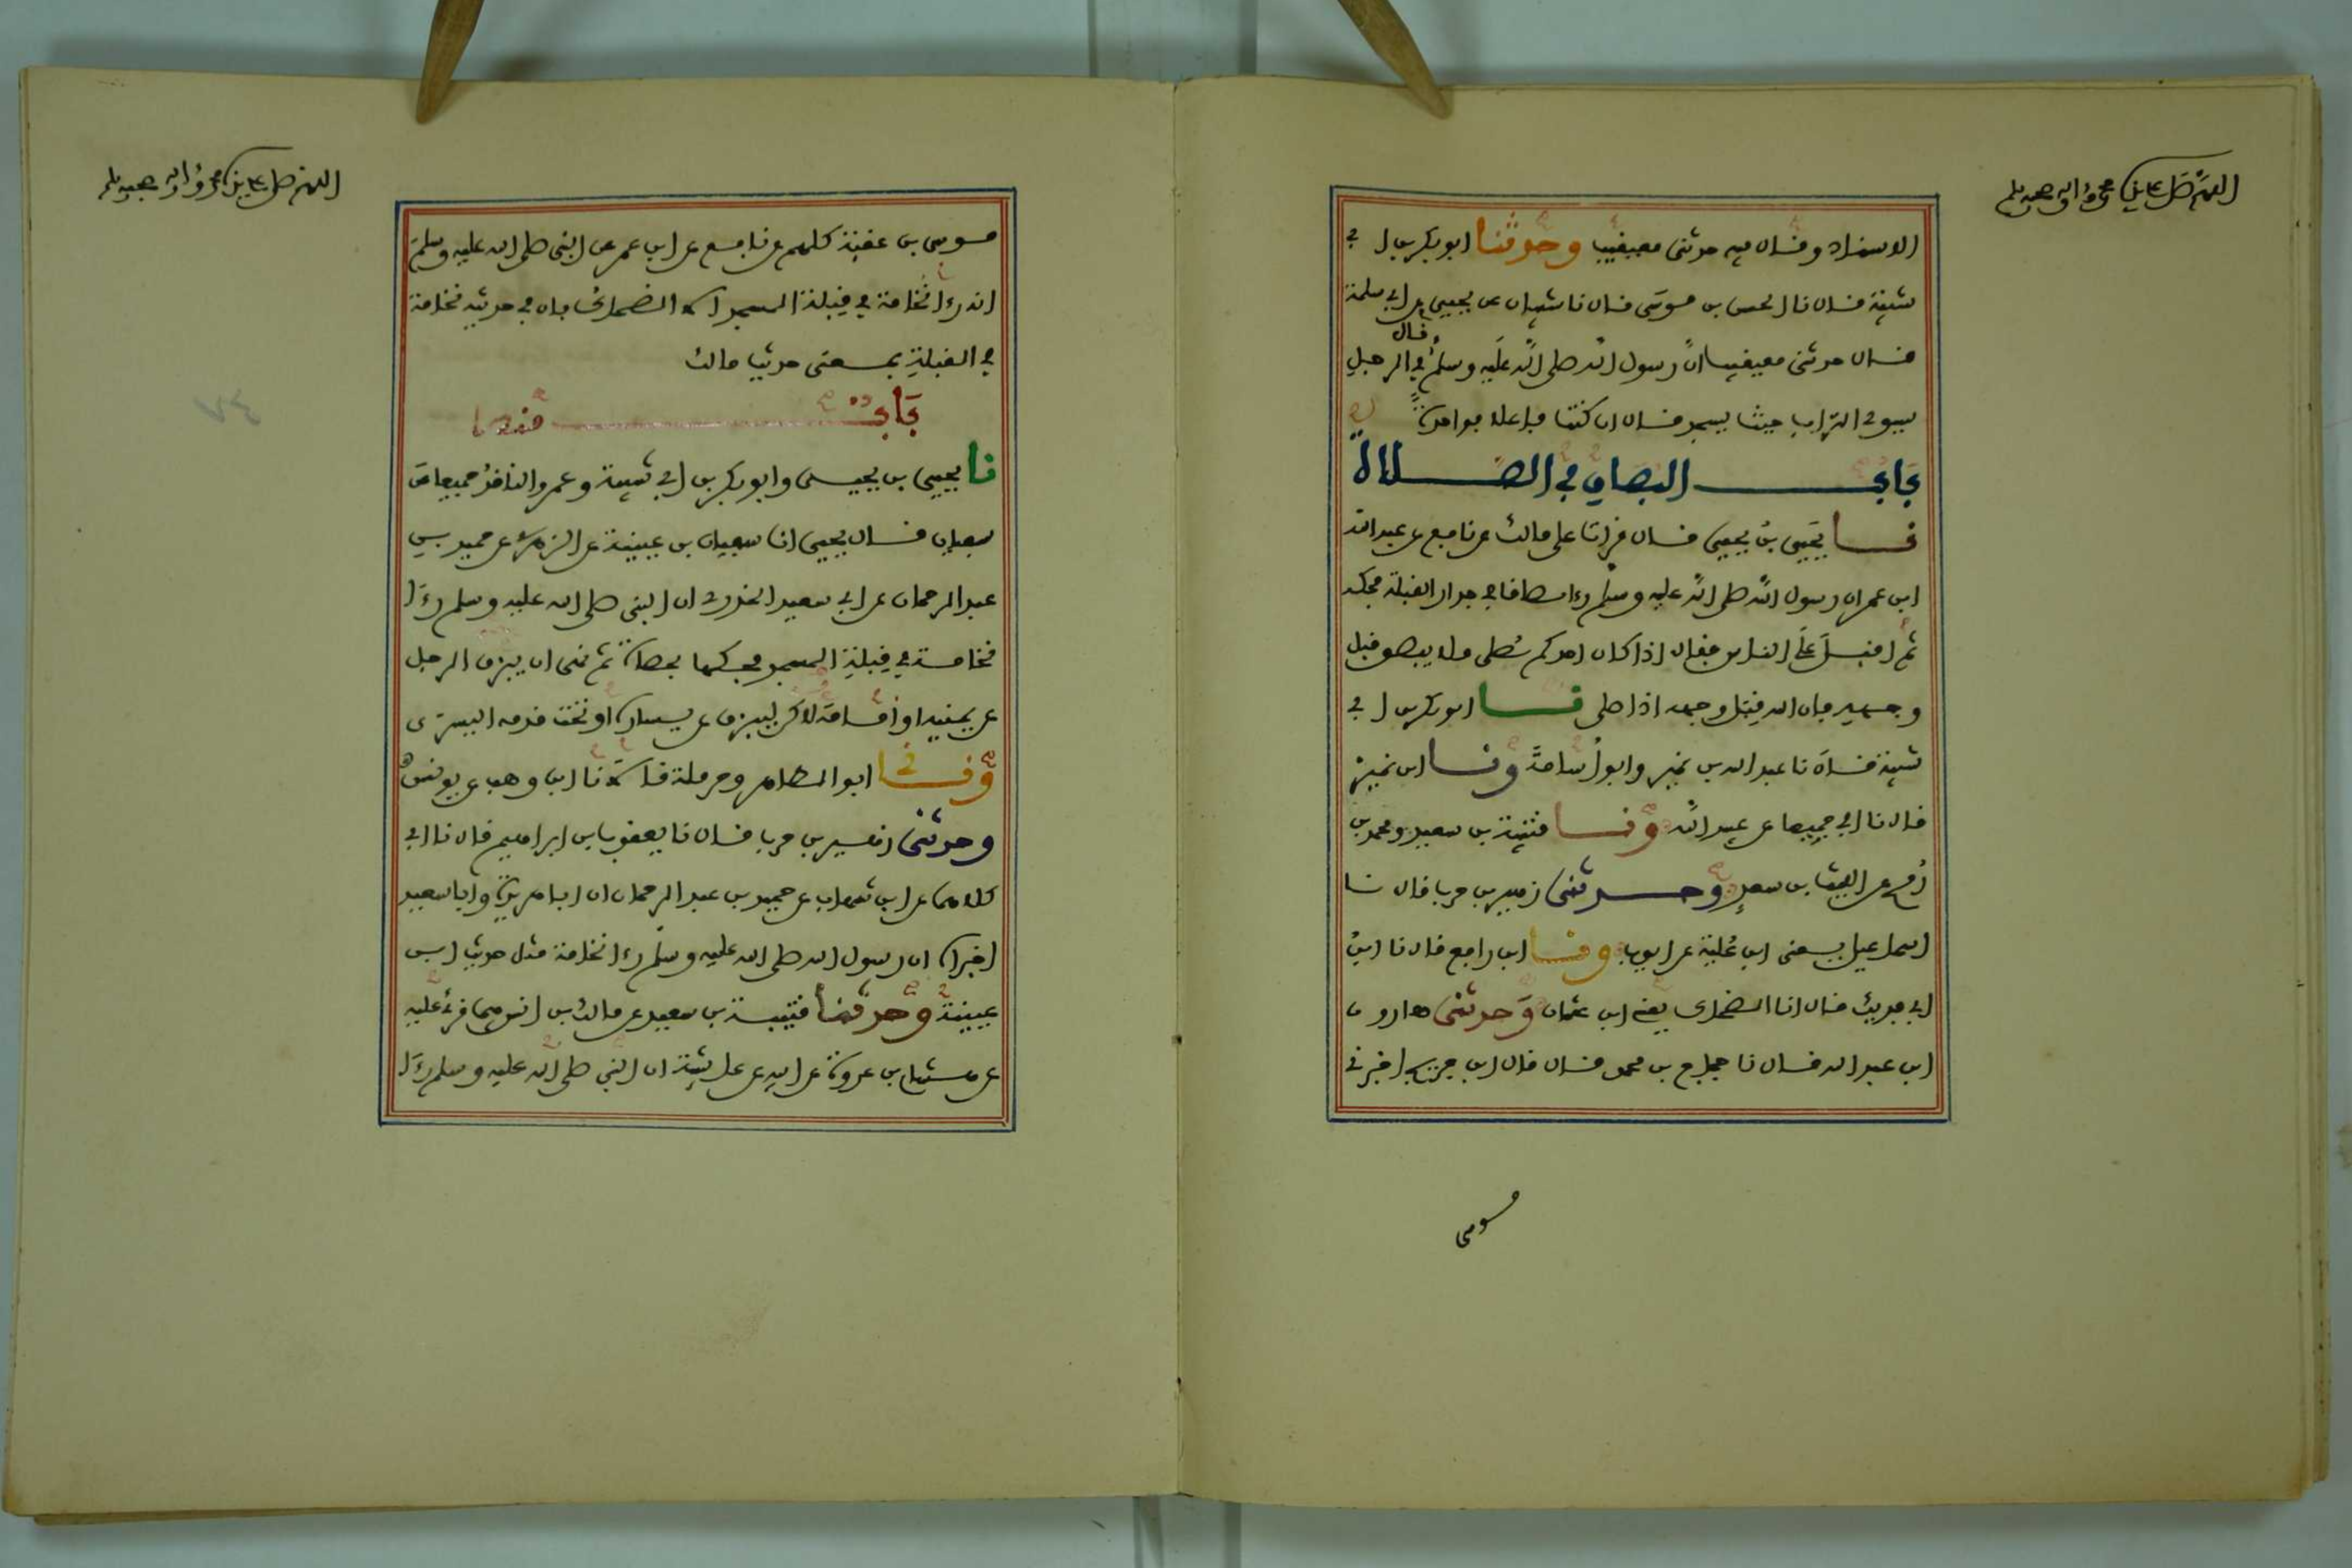 اللهم صل على سيدنا محمد وءاله وصحبه وسلم
الاسناد وقال فيه حدثني معيقيب وحدثنا ابو بكر بن ابي
شيبة قال نا الحسن بن موسى قال نا شيبان عن يحيى عن ابي سلمة
قال حدثني معيقيب ان رسول الله صلى الله عليه وسلم قال في الرجل
يسوي التراب حيث يسجد قال ان كنت فاعلا فواحدة
باب البصاق في الصلاة
نا يحيى بن يحيى قال قرات على مالك عن نافع عن عبد الله
ابن عمر ان رسول الله صلى الله عليه وسلم رءا بصاقا في جدار القبلة فحكه
ثم اقبل على الناس فقال اذا كان احدكم يصلى فلا يبصق قبل
وجهه فان الله قبل وجهه اذا صلى نا ابو بكر بن ابي
شيبة قال نا عبد الله بن نمير وابو أسامة ونا ابن نمير
قال نا ابي جميعا عن عبيد الله ونا قتيبة بن سعيد ومحمد بن
رمح عن الليث بن سعد وحدثني زهير بن حرب قال نا
اسماعيل يعنى ابن علية عن ايوب ونا ابن رافع قال نا ابن
ابي فديك قال انا الضحاك يعني ابن عثمان وحدثني هارون
ابن عبد الله قال نا حجاج بن محمد قال قال ابن جريج اخبرني
موسى
اللهم صل على سيدنا محمد وءاله وصحبه وسلم
موسى بن عقبة كلهم عن نافع عن ابن عمر عن النبى صلى الله عليه وسلم
انه رءا نخامة في قبلة المسجد الا الضحاك فان في حديثه نخامة
في القبلة بمعنى حديث مالك
باب منه
نا يحيى بن يحيى وابو بكر بن ابي شيبة وعمرو الناقد جميعا عن
سفيان قال يحيى انا سفيان بن عيينة عن الزهري عن حميد بن
عبد الرحمان عن ابي سعيد الخدري ان النبى صلى الله عليه وسلم رءا
نخامة في قبلة المسجد فحكها بحصاة ثم نهى ان يبزق الرجل
عن يمينه او أمامه لاكن ليبزق عن يساره او تحت قدمه اليسرى
ونا ابو الطاهر وحرملة قالا نا ابن وهب عن يونس
وحدثني زهير بن حرب قال نا يعقوب بن ابراهيم قال نا ابي
كلاهما عن ابن شهاب عن حميد بن عبد الرحمان ان ابا هريرة وابا سعيد
اخبراه ان رسول الله صلى الله عليه وسلم رءا نخامة مثل حديث ابن
عيينة وحدثنا قتيبة بن سعيد عن مالك بن انس فيما قرئ عليه
عن هشام بن عروة عن ابيه عن عائشة ان النبي صلى الله عليه وسلم رءا